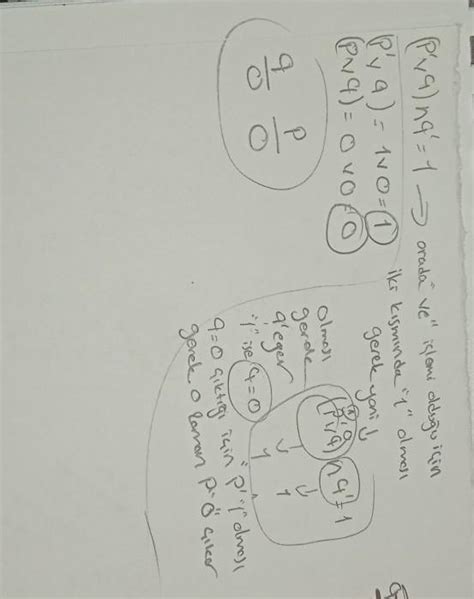 (p'∨q)∧q'=1 → orada "ve" işlemi olduğu için
iki kısmında "1" olması
gerek yani ↓
(p'∨q)=1∨0=1
(p∨q)=0∨0=0
q p
0 0
(p'∨q)∧q'=1
↓ ↓
1 1
olması
gerek
q' eğer
"1" ise q=0
q=0 çıktığı için "p'" "1" olması
gerek o zaman p=0 çıkar